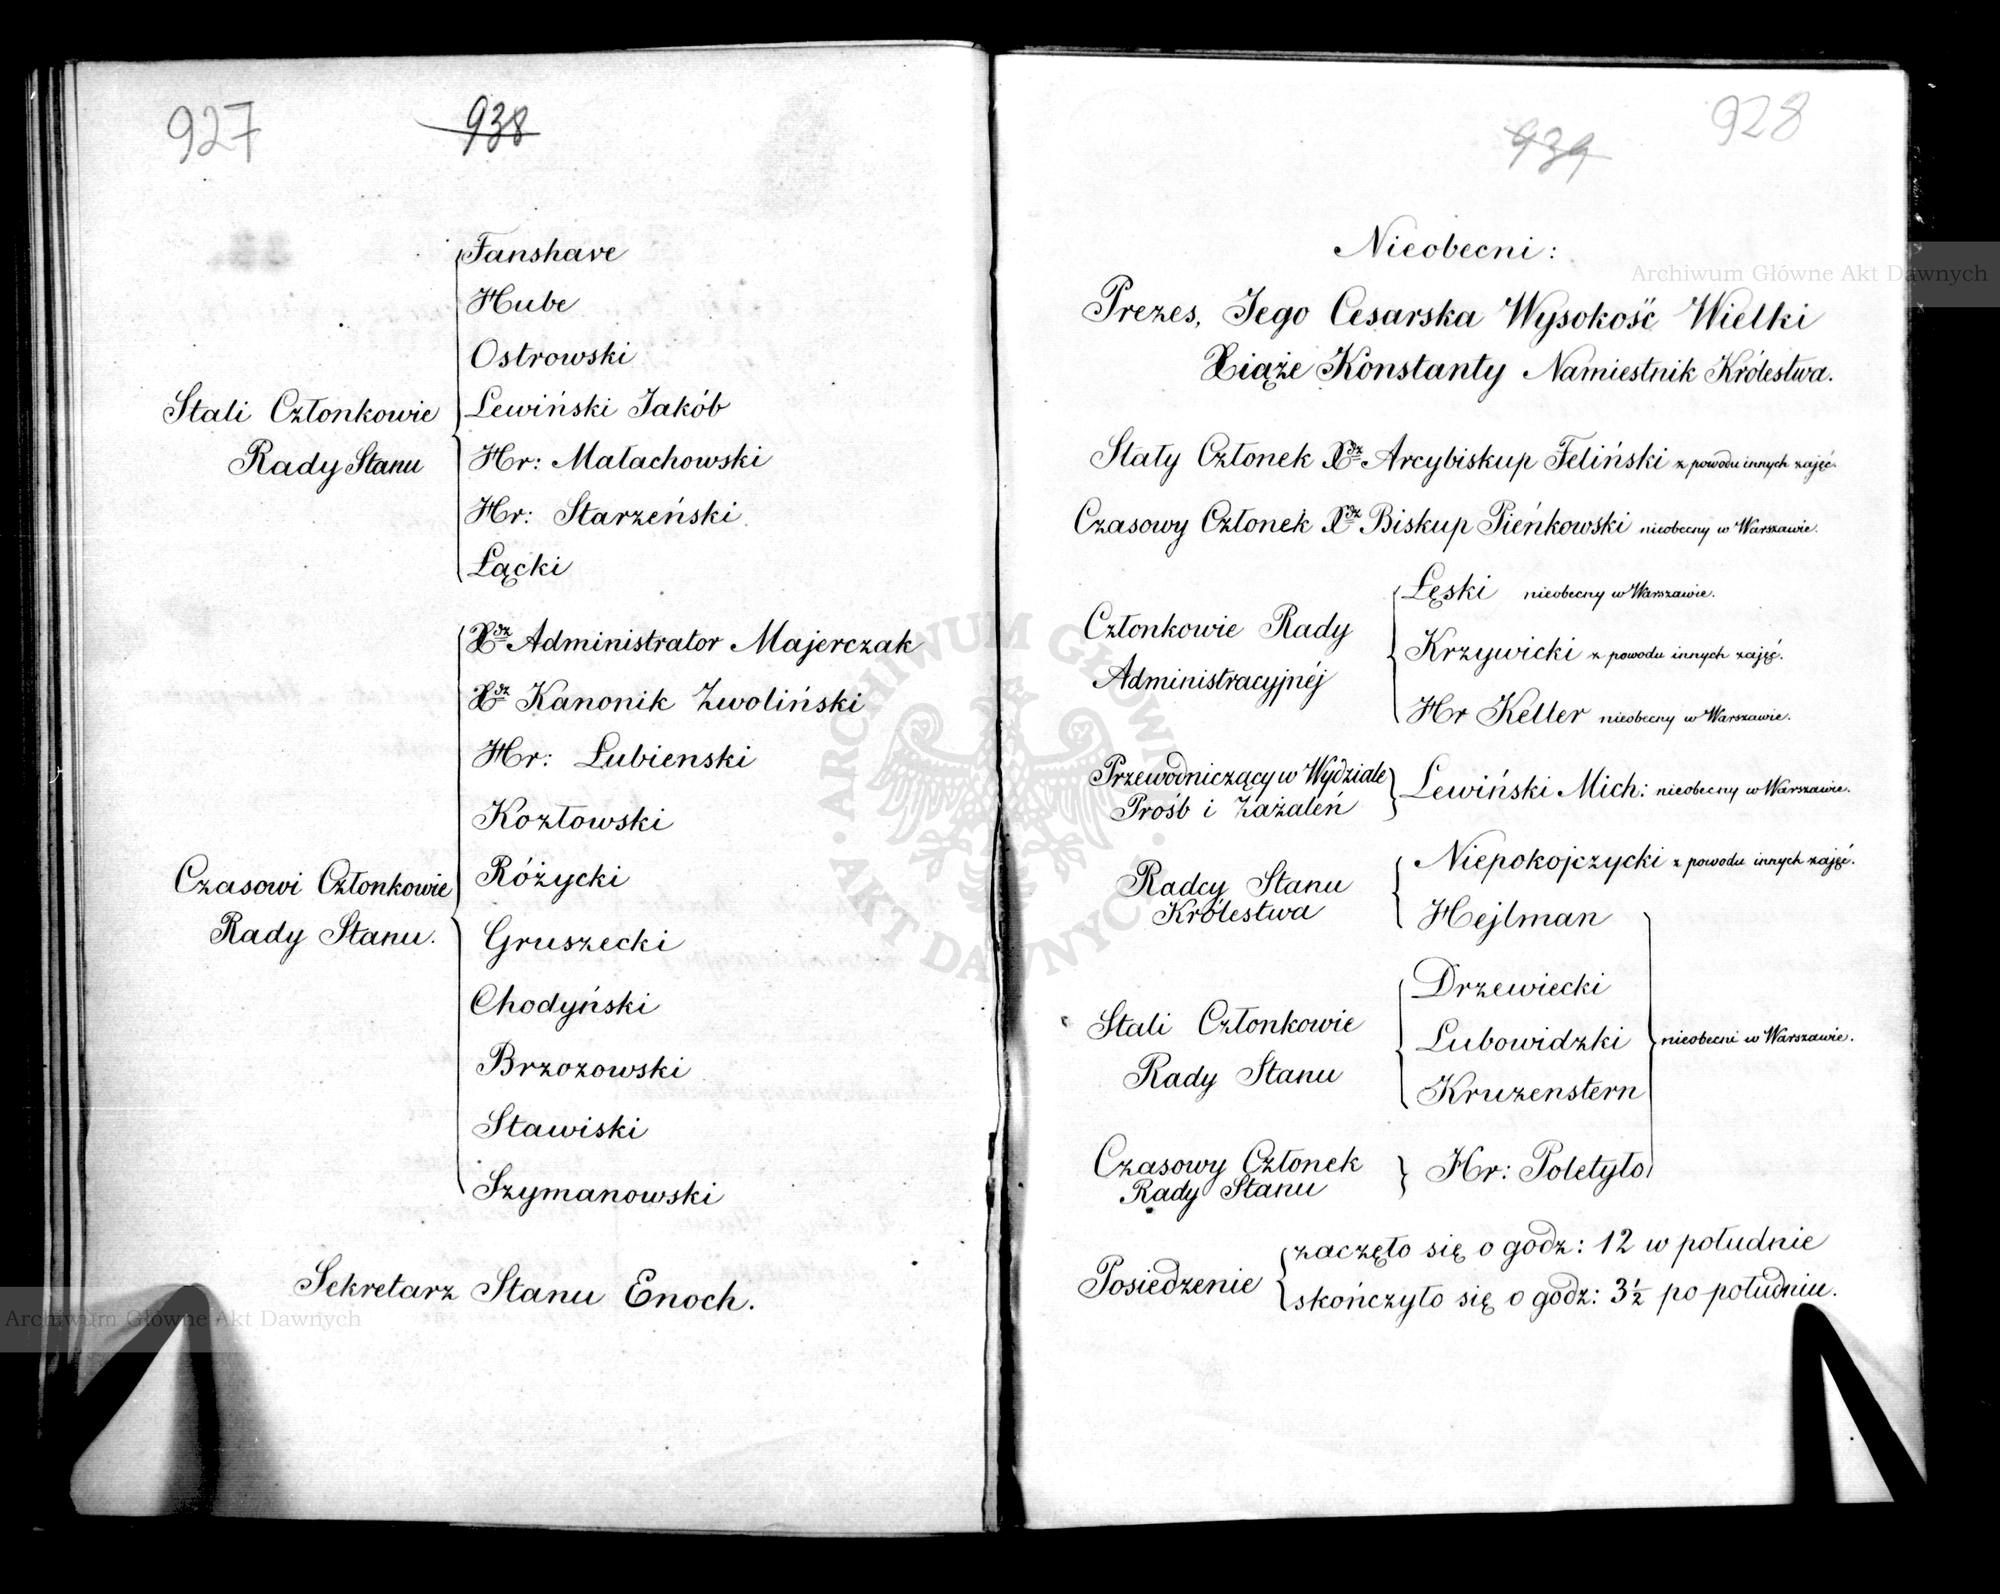 927
938
Fanshave
Hube
Ostrowski
Stali Członkowie
Rady Stanu
Lewiński Jakób
Hr: Małachowski
Hr: Starzeński
Łącki
Xdz Administrator Majerczak
Xdz Kanonik Zwoliński
Hr: Łubienski
Kozłowski
Czasowi Członkowie
Rady Stanu.
Różycki
Gruszecki
Chodyński
Brzozowski
Stawiski
Szymanowski
Sekretarz Stanu Enoch.
939
928
Nieobecni:
Prezes, Jego Cesarska Wysokość Wielki
Xiąże Konstanty Namiestnik Królestwa.
Stały Członek Xdz Arcybiskup Feliński z powodu innych zajęć.
Czasowy Członek Xdz Biskup Pieńkowski nieobecny w Warszawie.
Członkowie Rady
Administracyjnéj
Łęski nieobecny w Warszawie.
Krzywicki z powodu innych zajęć.
Hr Keller nieobecny w Warszawie.
Przewodniczący w Wydziale
Prośb i Zażaleń
Lewiński Mich: nieobecny w Warszawie.
Radcy Stanu
Królestwa
Niepokojczycki z powodu innych zajęć.
Hejlman
Stali Członkowie
Rady Stanu
Drzewiecki
Łubowidzki
Kruzenstern
nieobecni w Warszawie.
Czasowy Członek
Rady Stanu
Hr: Poletyło
Posiedzenie
zaczęło się o godz: 12 w południe
skończyło się o godz: 3½ po południu.
Archiwum Główne Akt Dawnych
Archiwum Główne Akt Dawnych
ARCHIWUM GŁÓWNE
AKT DAWNYCH